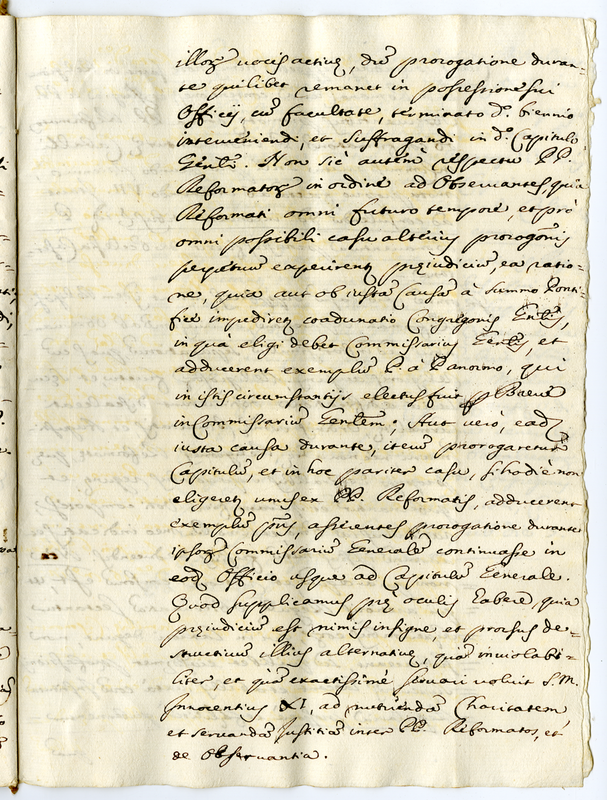 illoꝝ vocis activę, drē prorogatione duran=
te quilibet remanet in possessione sui
Officij, cū facultate, terminato dº. biennio
interveniendi, et suffragandi in dº. Capitulo
Genlī. Non sic autem respectu PP.
Reformatoꝝ in ordine ad Observantes, quia
Reformati omni futuro tempore, et pro
omni possibili casu alterius prorogōnis
perpetuū experirentꝫ pręiudiciū, ea ratio=
ne, quia aut ob iustā Causā à Summo Ponti=
fice impediretꝫ coadunatio Congalgonis Genlis,
in quà eligi debet Commissarius Genlis, et
adducerent exemplū P. à Panormo, qui
in istis circumstantijs electus fuit p Breve
in Commissariū Genlem; Aut verò, eadꝫ
iusta causa durante, iterū prorogaretur
Capitulū, et in hoc pariter casu, si hodiè non
eligeretꝫ unus ex PP. Reformatis, adducerent
exemplū pñs, asserentes prorogatione durante
ipsoꝝ Commissariū Generalē continuasse in
eodꝫ Officio usque ad Capitulū Generale.
Quod supplicamus prę oculis habere, quia
pręiudiciū est nimis insigne et prorsus de=
structivū illius alternativę, quā inviolabi=
liter, et quā exactissimè servari voluit S. M.
Innocentius XI, ad nutriendā Charitatem
et servandā Justitiā inter PP. Reformatos, et
de Observantia.